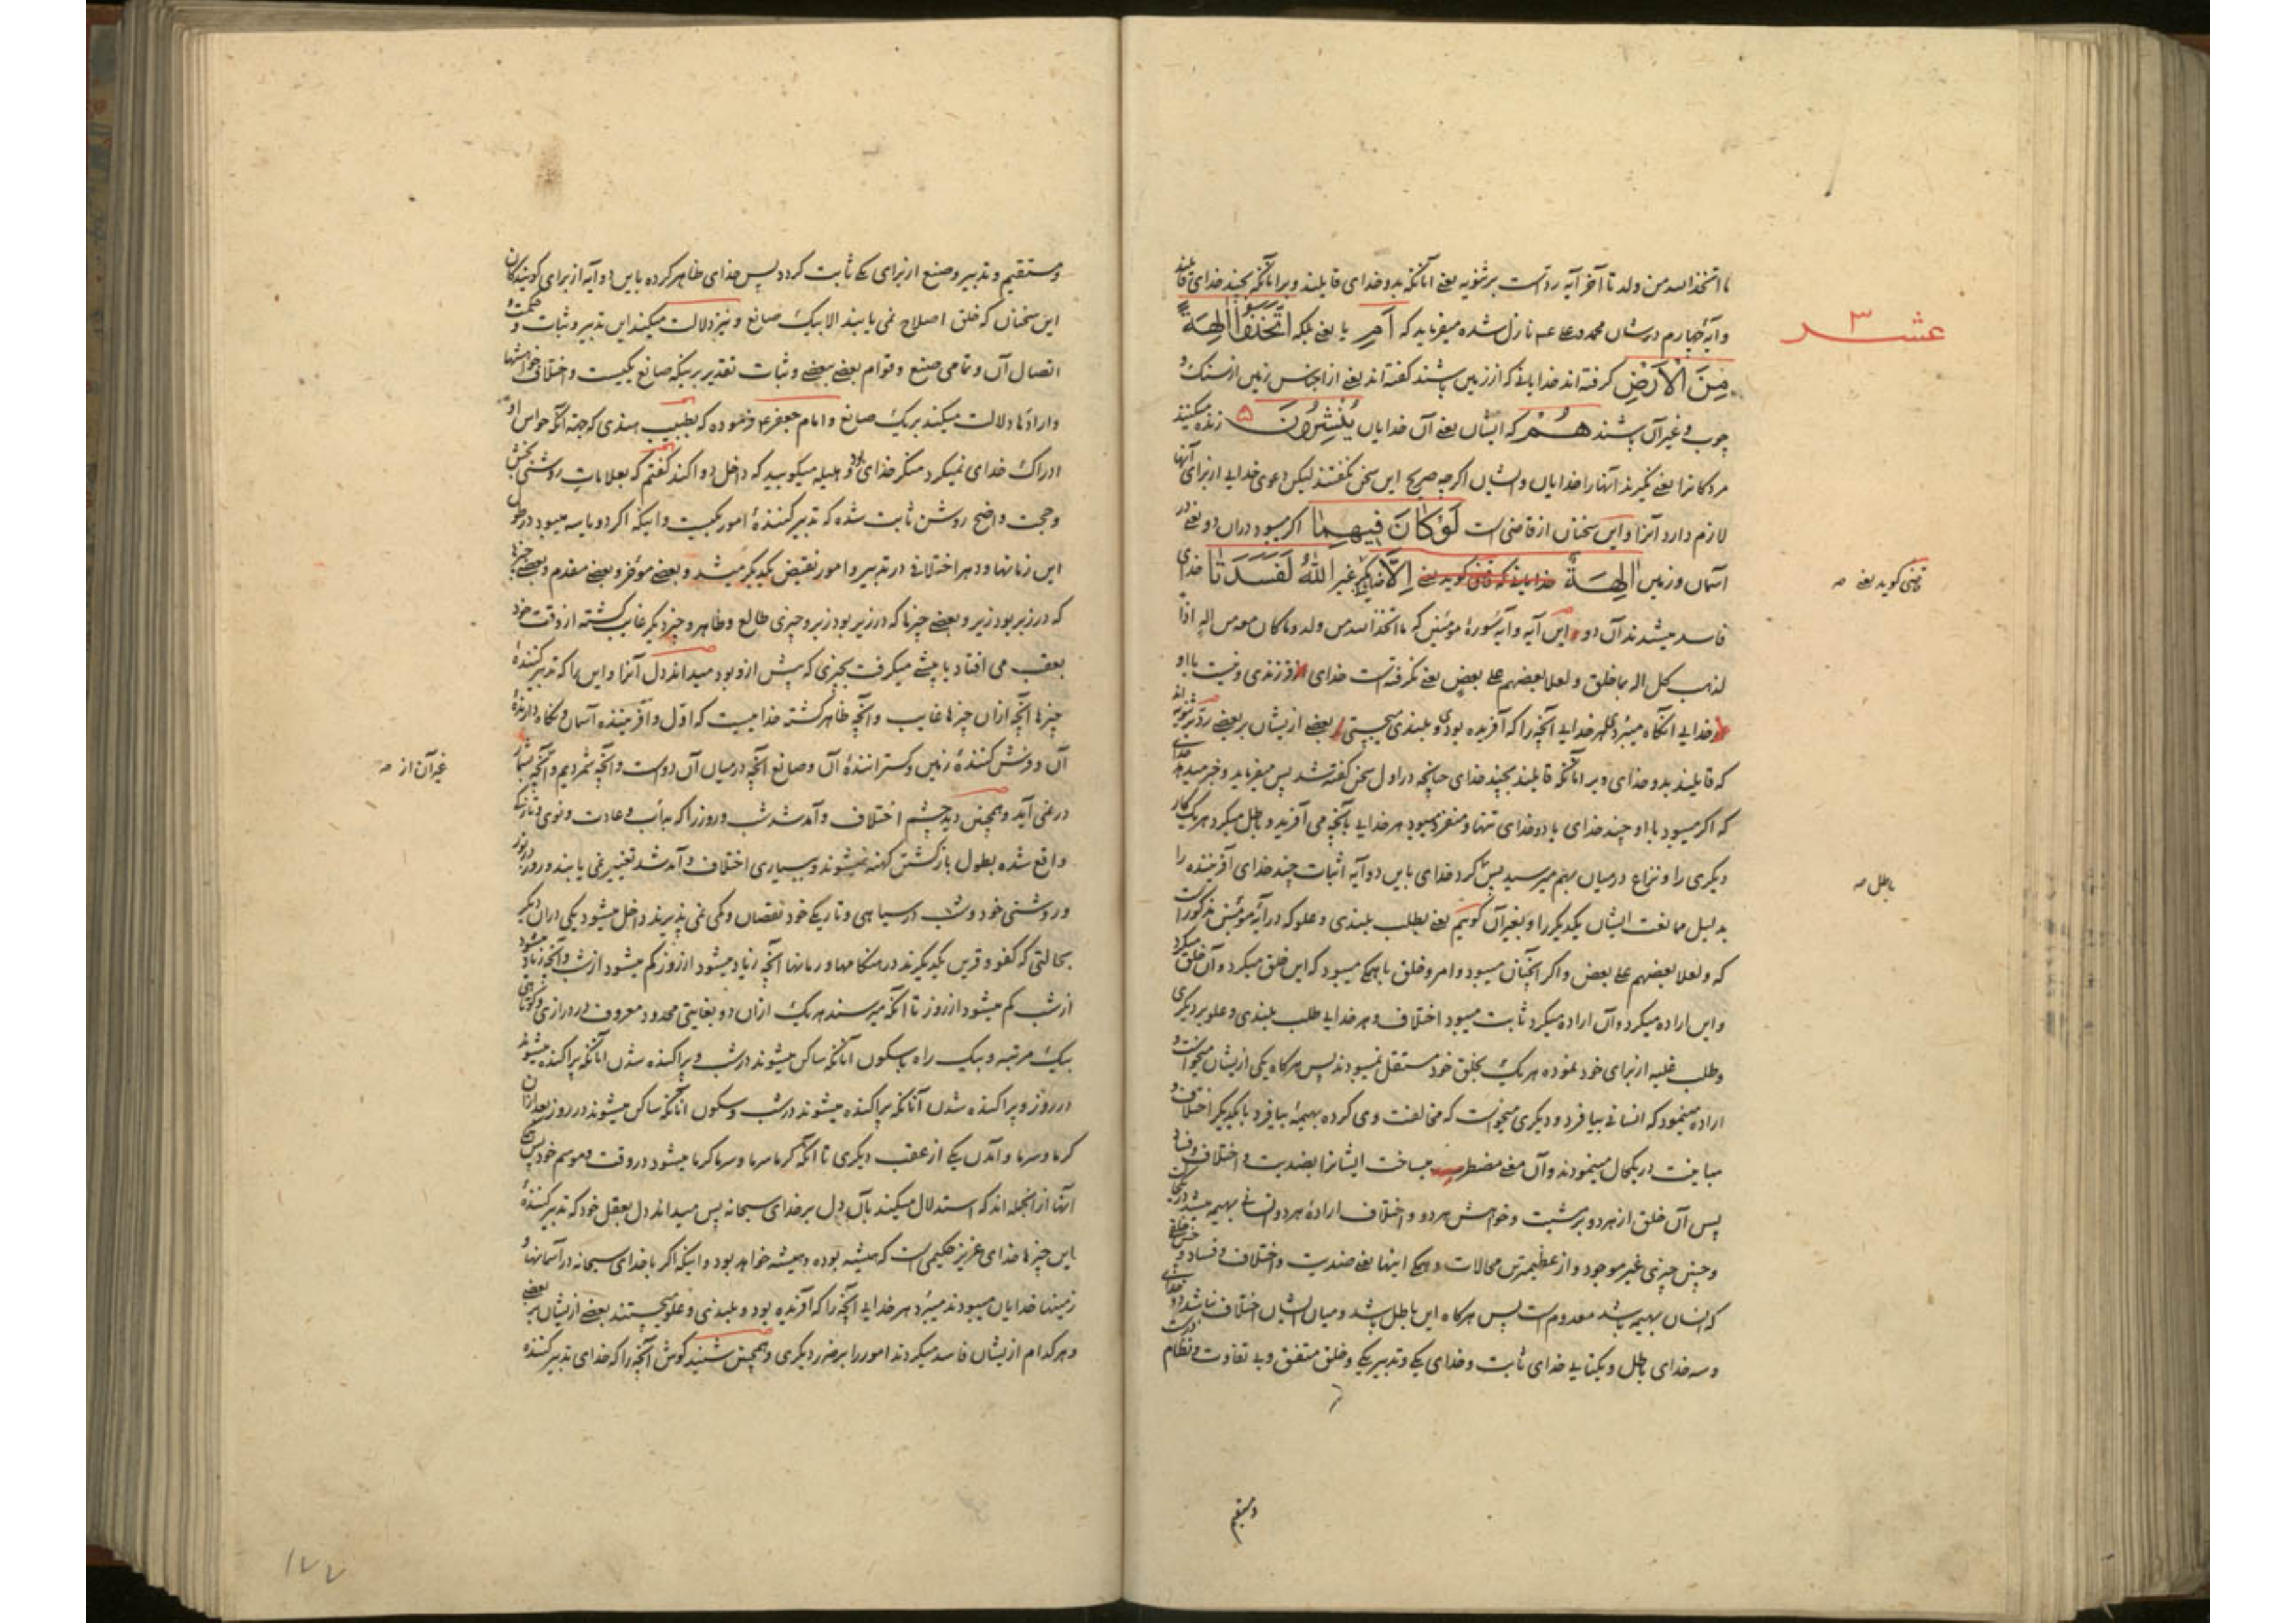 ما اتخذ الله من ولد تا آخر آیه رد است بر ثنویه یعنی آنانکه بدو خدای قایلند و بر آنانکه بچند خدای قایلند
عشر ۳
و آیه چهارم در شان محمد و علی عم نازل شده میفرماید که اَمِ یا یعنی بلکه اتَّخَذُوْا اٰلِهَةً
مِنَ الْاَرْضِ کرفته اند خدایانی که از زمین باشند کفته اند یعنی از اجناس زمین از سنک و
چوب و غیر آن باشند هُمْ که ایشان یعنی آن خدایان یُنْشِرُونَ زنده میکنند
مردکانرا یعنی نکیرند آنها را خدایان و ایشان اکرچه صریح این سخن نکفتند لیکن دعوی خدایی از برای آنها
لازم دارد آنرا و این سخنان از قاضی است لَوْ کَانَ فِیهِمَا اکر میبود در آن دو یعنی در
آسمان و زمین اٰلِهَةٌ خدایانی که قاضی کوید یعنی اِلَّا غیر اللّٰهُ لَفَسَدَتَا خدای
قاضی کوید یعنی صه
فاسد میشدند آن دو این آیه و آیه سورهٔ مؤمنین که ما اتخذ الله من ولد و ما کان معه من اله اذا
لذهب کل اله بما خلق و لعلا بعضهم علی بعض یعنی نکرفته است خدای فرزندی و نیست با او
خدایی آنکاه میبرد هر خدایی آنچه را که آفریده بود و بلندی میجستی بعضی ازیشان بر بعضی رد بر ثنویه اند
که قایلند بدو خدای و بر آنانکه قایلند بچند خدای چنانچه در اول سخن کفته شد پس میفرماید و خبر میدهد خدای
که اکر میبود با او چند خدای یا دو خدای تنها و منفرد میبود هر خدایی بآنچه می آفرید و باطل میکرد هر یک کار
دیکری را و نزاع در میان بهم میرسید پس کرد خدای باین دو آیه اثبات چند خدای آفریننده را
باطل صه
بدلیل ممانعت ایشان یکدیکر را و بغیر آن کوییم یعنی بطلب بلندی و علو که در آیهٔ مؤمنین مذکور است
که و لعلا بعضهم علی بعض و اکر آنچنان میبود و امر و خلق با همکی میبود که این خلق میکرد و آن خلق میکرد
و این اراده میکرد و آن اراده میکرد ثابت میبود اختلاف و هر خدایی طلب بلندی و علو بر دیکری
و طلب غلبه از برای خود نموده هر یک بخلق خود مستقل نمیبودند پس هرکاه یکی ازیشان میخواست و
اراده مینمود که انسانی بیافرد و دیکری میخواست که مخالفت وی کرده بهیمهٔ بیافرد با یکدیکر اختلاف و
مباینت در یکحال مینمودند و آن معنی مضطر میساخت ایشانرا بضدیت و اختلاف و فساد
پس آن خلق از هر دو بر مشیت و خواهش هر دو و اختلاف ارادهٔ هر دو انسانی بهیمه میشد در یکحالت
و چنین چیزی غیر موجود و از عظیمترین محالات و همکی اینها یعنی ضدیت و اختلاف و فساد و چنین خلق
که انسان بهیمه باشد معدوم است پس هرکاه این باطل باشد و میان ایشان اختلاف نباشد دو خدای
و سه خدای باطل و یکتایی خدای ثابت و خدای یکی و تدبیر یکی و خلق متفق و بی تفاوت و نظام درست
و مستقیم
و مستقیم و تدبیر و صنع از برای یکی ثابت کردد پس خدای ظاهر کرده باین دو آیه از برای کویندکان
این سخنان که خلق اصلاح نمی یابند الا بیک صانع و نیز دلالت میکند این تدبیر و ثبات و حکمت و
اتصال آن و تمامی صنع و قوام بعضی ببعضی و ثبات تقدیر بر اینکه صانع یکیست و اختلاف خواهشها
و ارادها دلالت میکند بر یک صانع و امام جعفر ع م فرموده که بطبیب هندی که جهة آنکه حواس او
ادراک خدای نمیکرد منکر خدای بود و هلیله میکوبید که داخل دوا کند کفتم که بعلامات روشنی بخش
و حجت واضح روشن ثابت شده که تدبیر کنندهٔ امور یکیست و اینکه اکر دو یا سه میبود در طول
این زمانها و دهر اختلافی در تدبیر و امور نقیض یکدیکر میشد و بعضی مؤخر و بعضی مقدم و بعضی چیزها
که در زیر بود زبر و بعضی چیزها که در زبر بود زیر و چیزی طالع و ظاهر و چیز دیکر غایب کشته از وقت خود
بعقب می افتاد یا پیشی میکرفت بچیزی که پیش ازو بود میداند دل آنرا و این را که تدبیر کنندهٔ
چیزها آنچه از آن چیزها غایب و آنچه ظاهر کشته خداییست که اول و آفریننده آسمان و نکاه دارندهٔ
آن و فرش کنندهٔ زمین و کسترانندهٔ آن و صانع آنچه در میان آن دو است و آنچه شمردیم و آنچه بشمار
غیر آن از صه
در نمی آید و همچنین دید چشم اختلاف و آمد شد شب و روز را که بدأب و عادت و نوی و تازکی
واقع شده بطول بازکشتن کهنه نمیشوند و بسیاری اختلاف و آمد شد تغییر نمی یابند و روز در نور
و روشنی خود و شب در سیاهی و تاریکی خود نقصان و کمی نمی پذیرند داخل میشود یکی در آن دیکر
بحالتی که کفو و قرین یکدیکرند در هنکامها و زمانها آنچه زیاد میشود از روز کم میشود از شب و آنچه زیاد میشود
از شب کم میشود از روز تا آنکه میرسند هر یک از آن دو بغایتی محدود معروف در درازی و کوتاهی
بیک مرتبه و بیک راه با سکون آنانکه ساکن میشوند در شب و پراکنده شدن آنانکه پراکنده میشوند
در روز و پراکنده شدن آنانکه پراکنده میشوند در شب و سکون آنانکه ساکن میشوند در روز بعد از آن
کرما و سرما و آمدن یکی از عقب دیکری تا آنکه کرما سرما و سرما کرما میشود در وقت و موسم خود پس همکی
آنها از آنجمله اند که استدلال میکنند بآن دل بر خدای سبحانه پس میداند دل بعقل خود که تدبیر کنندهٔ
این چیزها خدای عزیز حکیمی است که همیشه بوده و همیشه خواهد بود و اینکه اکر با خدای سبحانه در آسمانها و
زمینها خدایان میبودند میبرد هر خدایی آنچه را که آفریده بود و بلندی و علو میجستند بعضی ازیشان بر بعضی
و هر کدام ازیشان فاسد میکردند امور را بر ضرر دیکری و همچنین شنید کوش آنچه را که خدای تدبیر کننده
۱۷۷